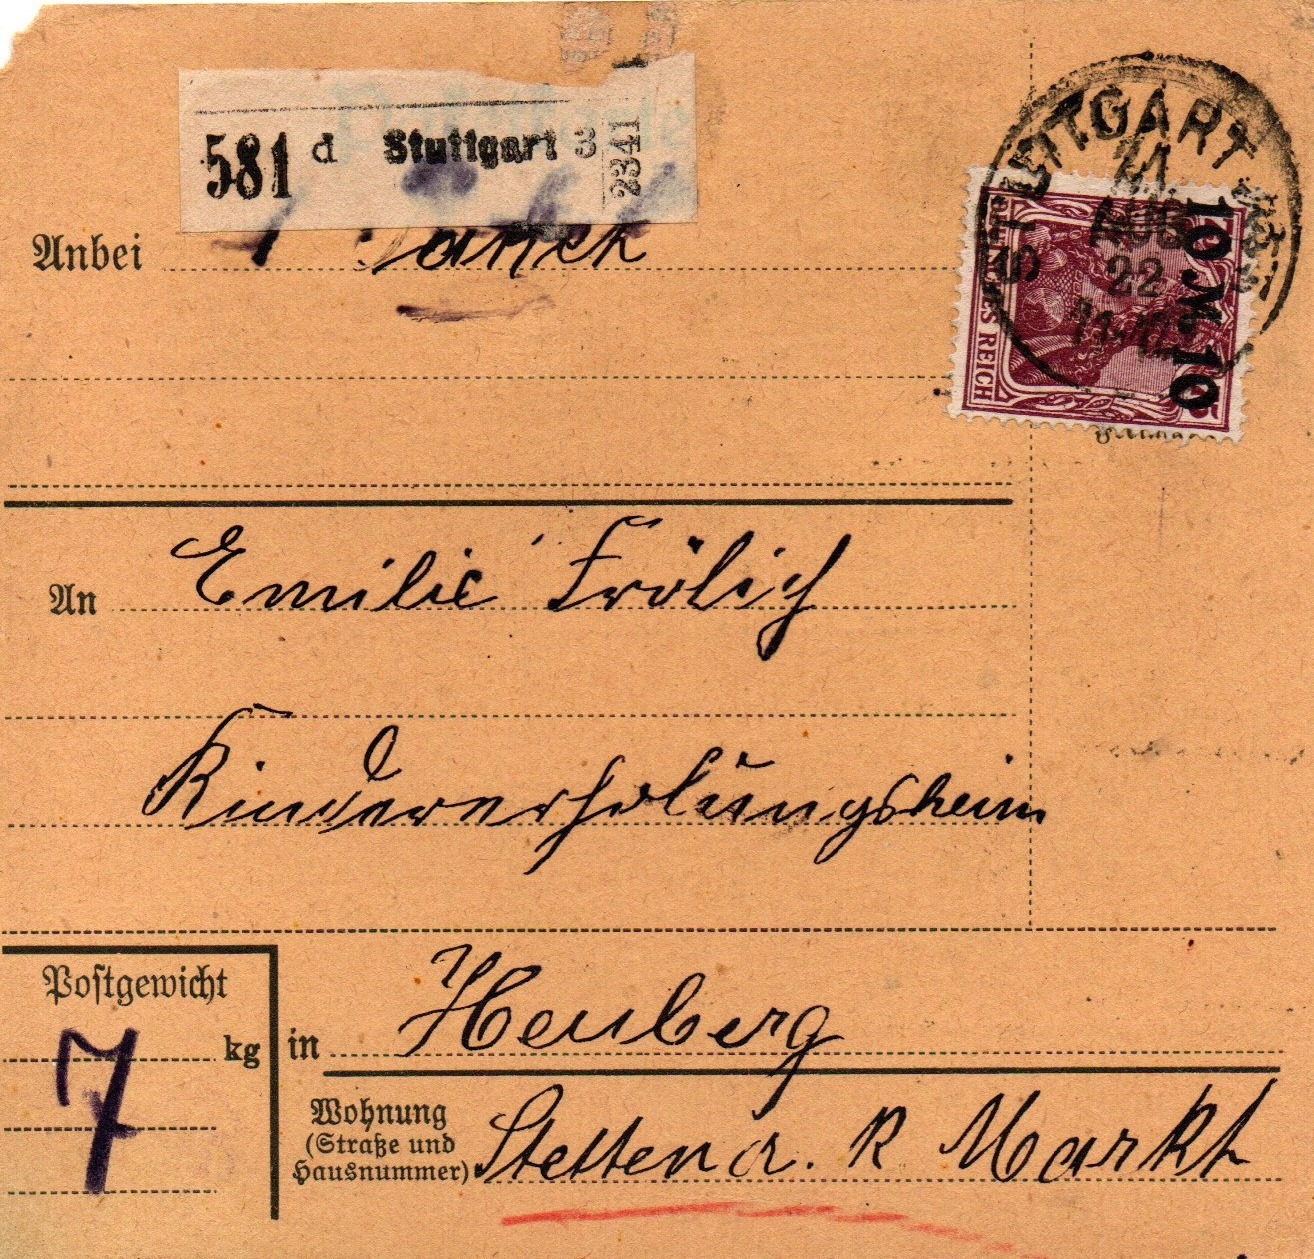 581 d Stuttgart 3
2341
STUTTGART
AUG
22
10 M 10
DEUTSCHES REICH
Anbei 1
An Emilie Frölich
Kindererholungsheim
Postgewicht
7 kg
in Heuberg
Wohnung
(Straße und
Hausnummer)
Stetten a. K Markt